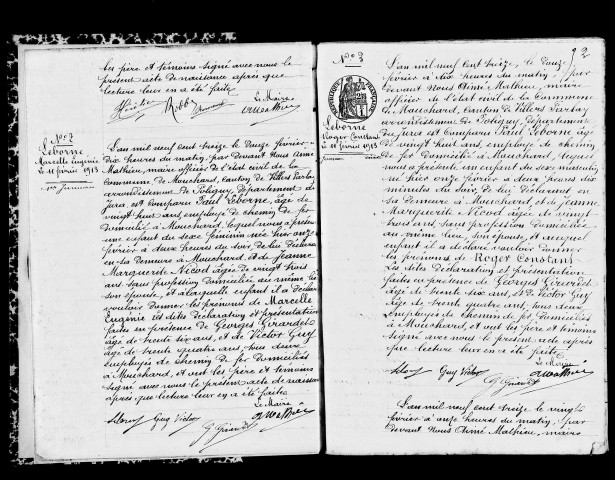 les père et témoins signé avec nous le
présent acte de naissance après que
lecture leur en a été faite
Le Maire
N° 2
Leborne
Marcelle Eugénie
Le 11 février 1913
L'an mil neuf cent treize le douze février à
dix heures du matin, par devant Nous Aimé
Mathieu, maire officier de l'état civil de la
Commune de Mouchard, canton de Villers Farlay
arrondissement de Poligny, département du
Jura est comparu Paul Leborne, âgé de
vingt huit ans, employé de chemin de fer
domicilié à Mouchard, lequel nous a présenté
une enfant du sexe féminin née hier onze
février à deux heures du soir de lui déclarant
en sa demeure à Mouchard, et de Jeanne
Marguerite Nicod âgée de vingt trois
ans, sans profession domiciliée au même lieu
son épouse, et à laquelle enfant il a déclaré
vouloir donner les prénoms de Marcelle
Eugénie les dites déclaration et présentation
faites en présence de Georges Girardet
âgé de trente six ans, et de Victor Guy
âgé de trente quatre ans, tous deux
employés de chemin de fer domiciliés
à Mouchard, et ont les père et témoins
signé avec nous le présent acte de naissance
après que lecture leur en a été faite
Le Maire
Guy Victor
G Girardet
2
N° 3
RÉPUBLIQUE FRANÇAISE
Leborne
Roger Constant
Le 11 février 1913
L'an mil neuf cent treize, le douze
février à dix heures du matin, par
devant Nous Aimé Mathieu, maire
officier de l'état civil de la Commune
de Mouchard, Canton de Villers Farlay
arrondissement de Poligny, département
du Jura est comparu Paul Leborne âgé
de vingt huit ans, employé de chemin
de fer domicilié à Mouchard, lequel
nous a présenté, un enfant du sexe masculin,
né hier onze février à deux heures dix
minutes du soir de lui déclarant en
sa demeure à Mouchard, et de Jeanne
Marguerite Nicod âgée de vingt
trois ans, sans profession domiciliée
au même lieu, son épouse, et auquel
enfant il a déclaré vouloir donner
les prénoms de Roger Constant
Les dites déclaration et présentation
faites en présence de Georges Girardet
âgé de trente six ans, et de Victor Guy
âgé de trente quatre ans, tous deux
employés de chemin de fer, domiciliés
à Mouchard, et ont les père et témoins
signé avec nous le présent acte après
que lecture leur en a été faite
Le Maire
Guy Victor
G Girardet
L'an mil neuf cent treize le vingt
février à onze heures du matin, par
devant Nous Aimé Mathieu, maire